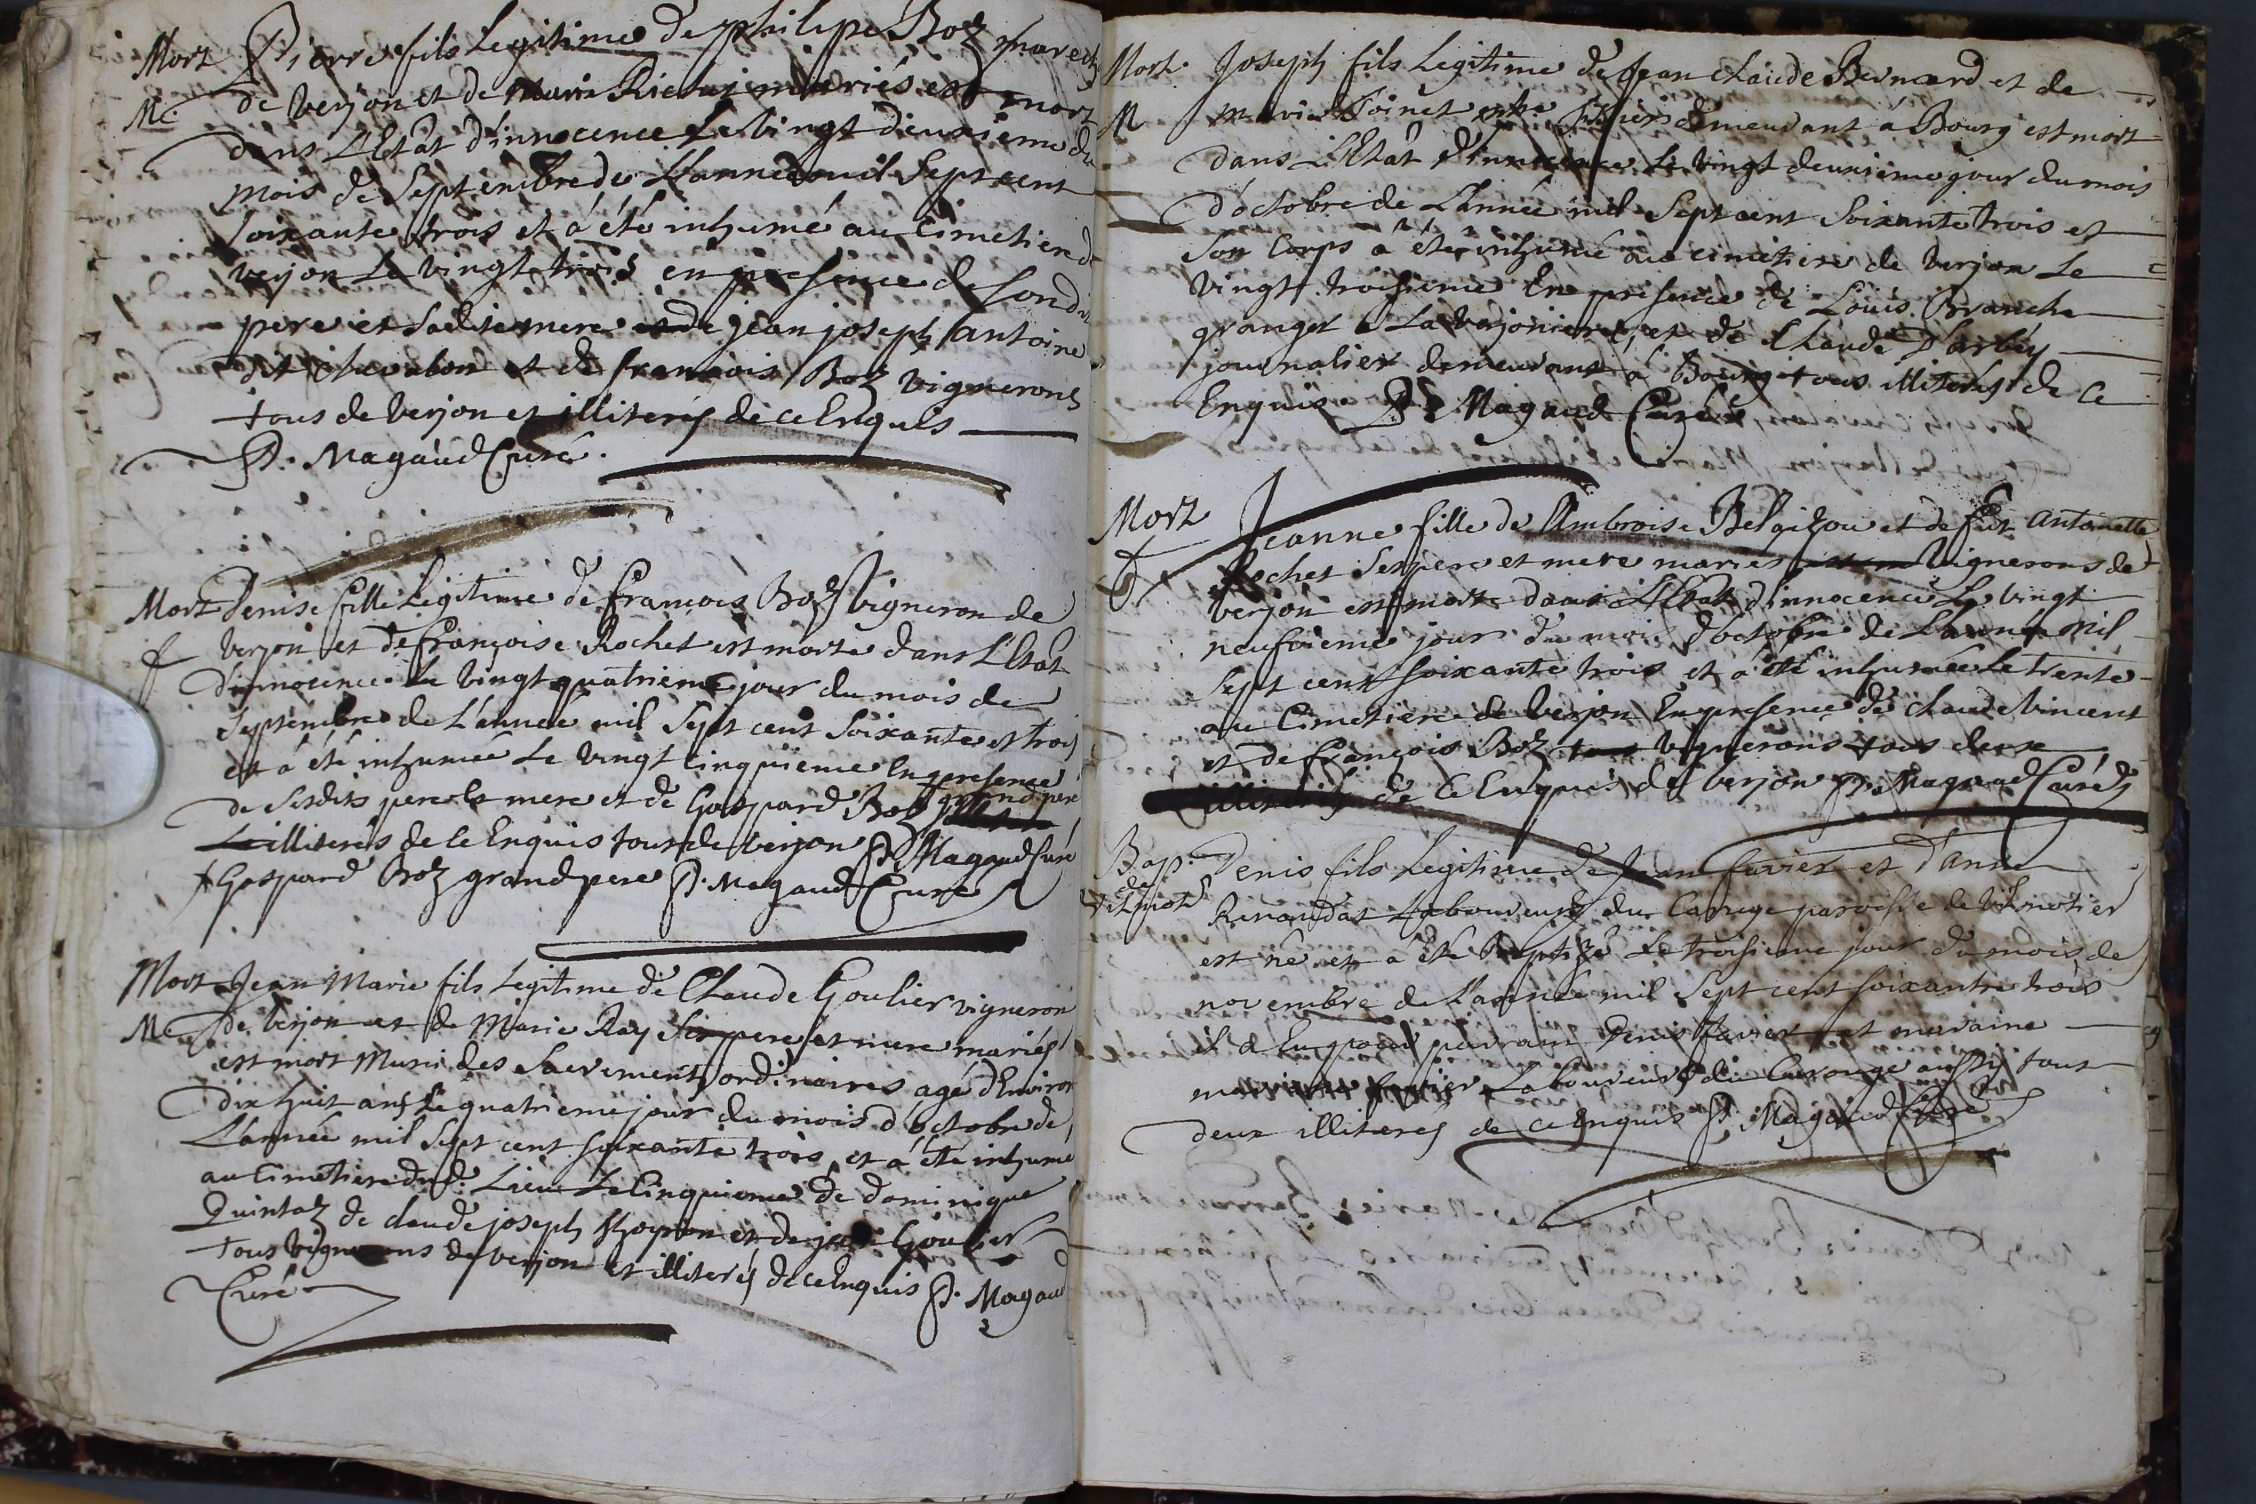 Mort Pierre fils Legitime de philipe Boz
M. de Verjon et de Marie mariés est mort
dans L'Etat d'innocence Le vingt deuxieme du
mois de Septembre de L'année mil Sept cent
soixante trois et a été inhumé au Cimetiere de
verjon Le vingt trois en presence de Sondit
pere et Saditte mere et de jean joseph Antoine
dit et de francois Boz vignerons
tous de Verjon et illiterés de ce Enquis
P. Magaud Curé.
Mort Denise fille Legitime de francois Boz Vigneron de
f Verjon et de françoise Rochet est morte dans L'Etat
d'innocence Le vingt quatrieme jour du mois de
Septembre de L'année mil Sept cent Soixante et trois
et a été inhumée Le vingt Cinquieme En presence
de Sesdits pere et mere et de Gaspard Boz grand pere
illiterés de ce Enquis tous de verjon P. Magaud Curé
+ Gaspard Boz grand pere P. Magaud Curé
Mort Jean Marie fils Legitime de Claude Goulier vigneron
M. de Verjon et de Marie Ray Ses pere et mere mariés
est mort Muni des Sacrements ordinaires agé d'Environ
Dix huit ans Le quatrieme jour du mois d'octobre de
L'année mil Sept cent soixante trois et a été inhumé
au Cimetiere dud. Lieu Le Cinquieme de dominique
Quintaz de claude joseph et de Goulier
tous vignerons de verjon et illiterés de ce Enquis P. Magaud
Curé
Mort. Joseph fils Legitime de Jean claude Bernard et de
M marie demeurant á Bourg est mort
dans L'Etat d'innocence Le vingt deuxieme jour du mois
d'octobre de L'année mil Sept cent Soixante trois et
Son Corps a été inhumé au cimetiere de verjon Le
vingt troisieme En presence de Louis
granger a La verjoniere, et de Claude Darbey
journalier demeurant á Bourg tous illiterés de ce
Enquis P. Magaud Curé
Mort Jeanne fille de Ambroise et de feüe antoinette
f. Rochet Ses pere et mere mariés vignerons de
Verjon est morte dans L'Etat d'innocence Le vingt
neufvieme jour du mois d'octobre de L'année mil
Sept cent soixante trois et a été inhumée Le trente
au Cimetiere de Verjon En presence de claude Vincent
et de françois Boz vignerons tous deux
illiterés de Ce Enquis de verjon P. Magaud Curé
Bap. Denis fils Legitime de Jean Cuvier et d'Anne
de Renaudat Laboureurs du Carouge paroisse de Vilmotier
vilmot. est né et a été Baptizé Le troisieme jour du mois de
novembre de L'année mil Sept cent soixante trois
il a Eu pour parrain Denis Cuvier et maraine
Laboureurs du Carouge aussy tous
deux illiterés de ce Enquis P. Magaud Curé